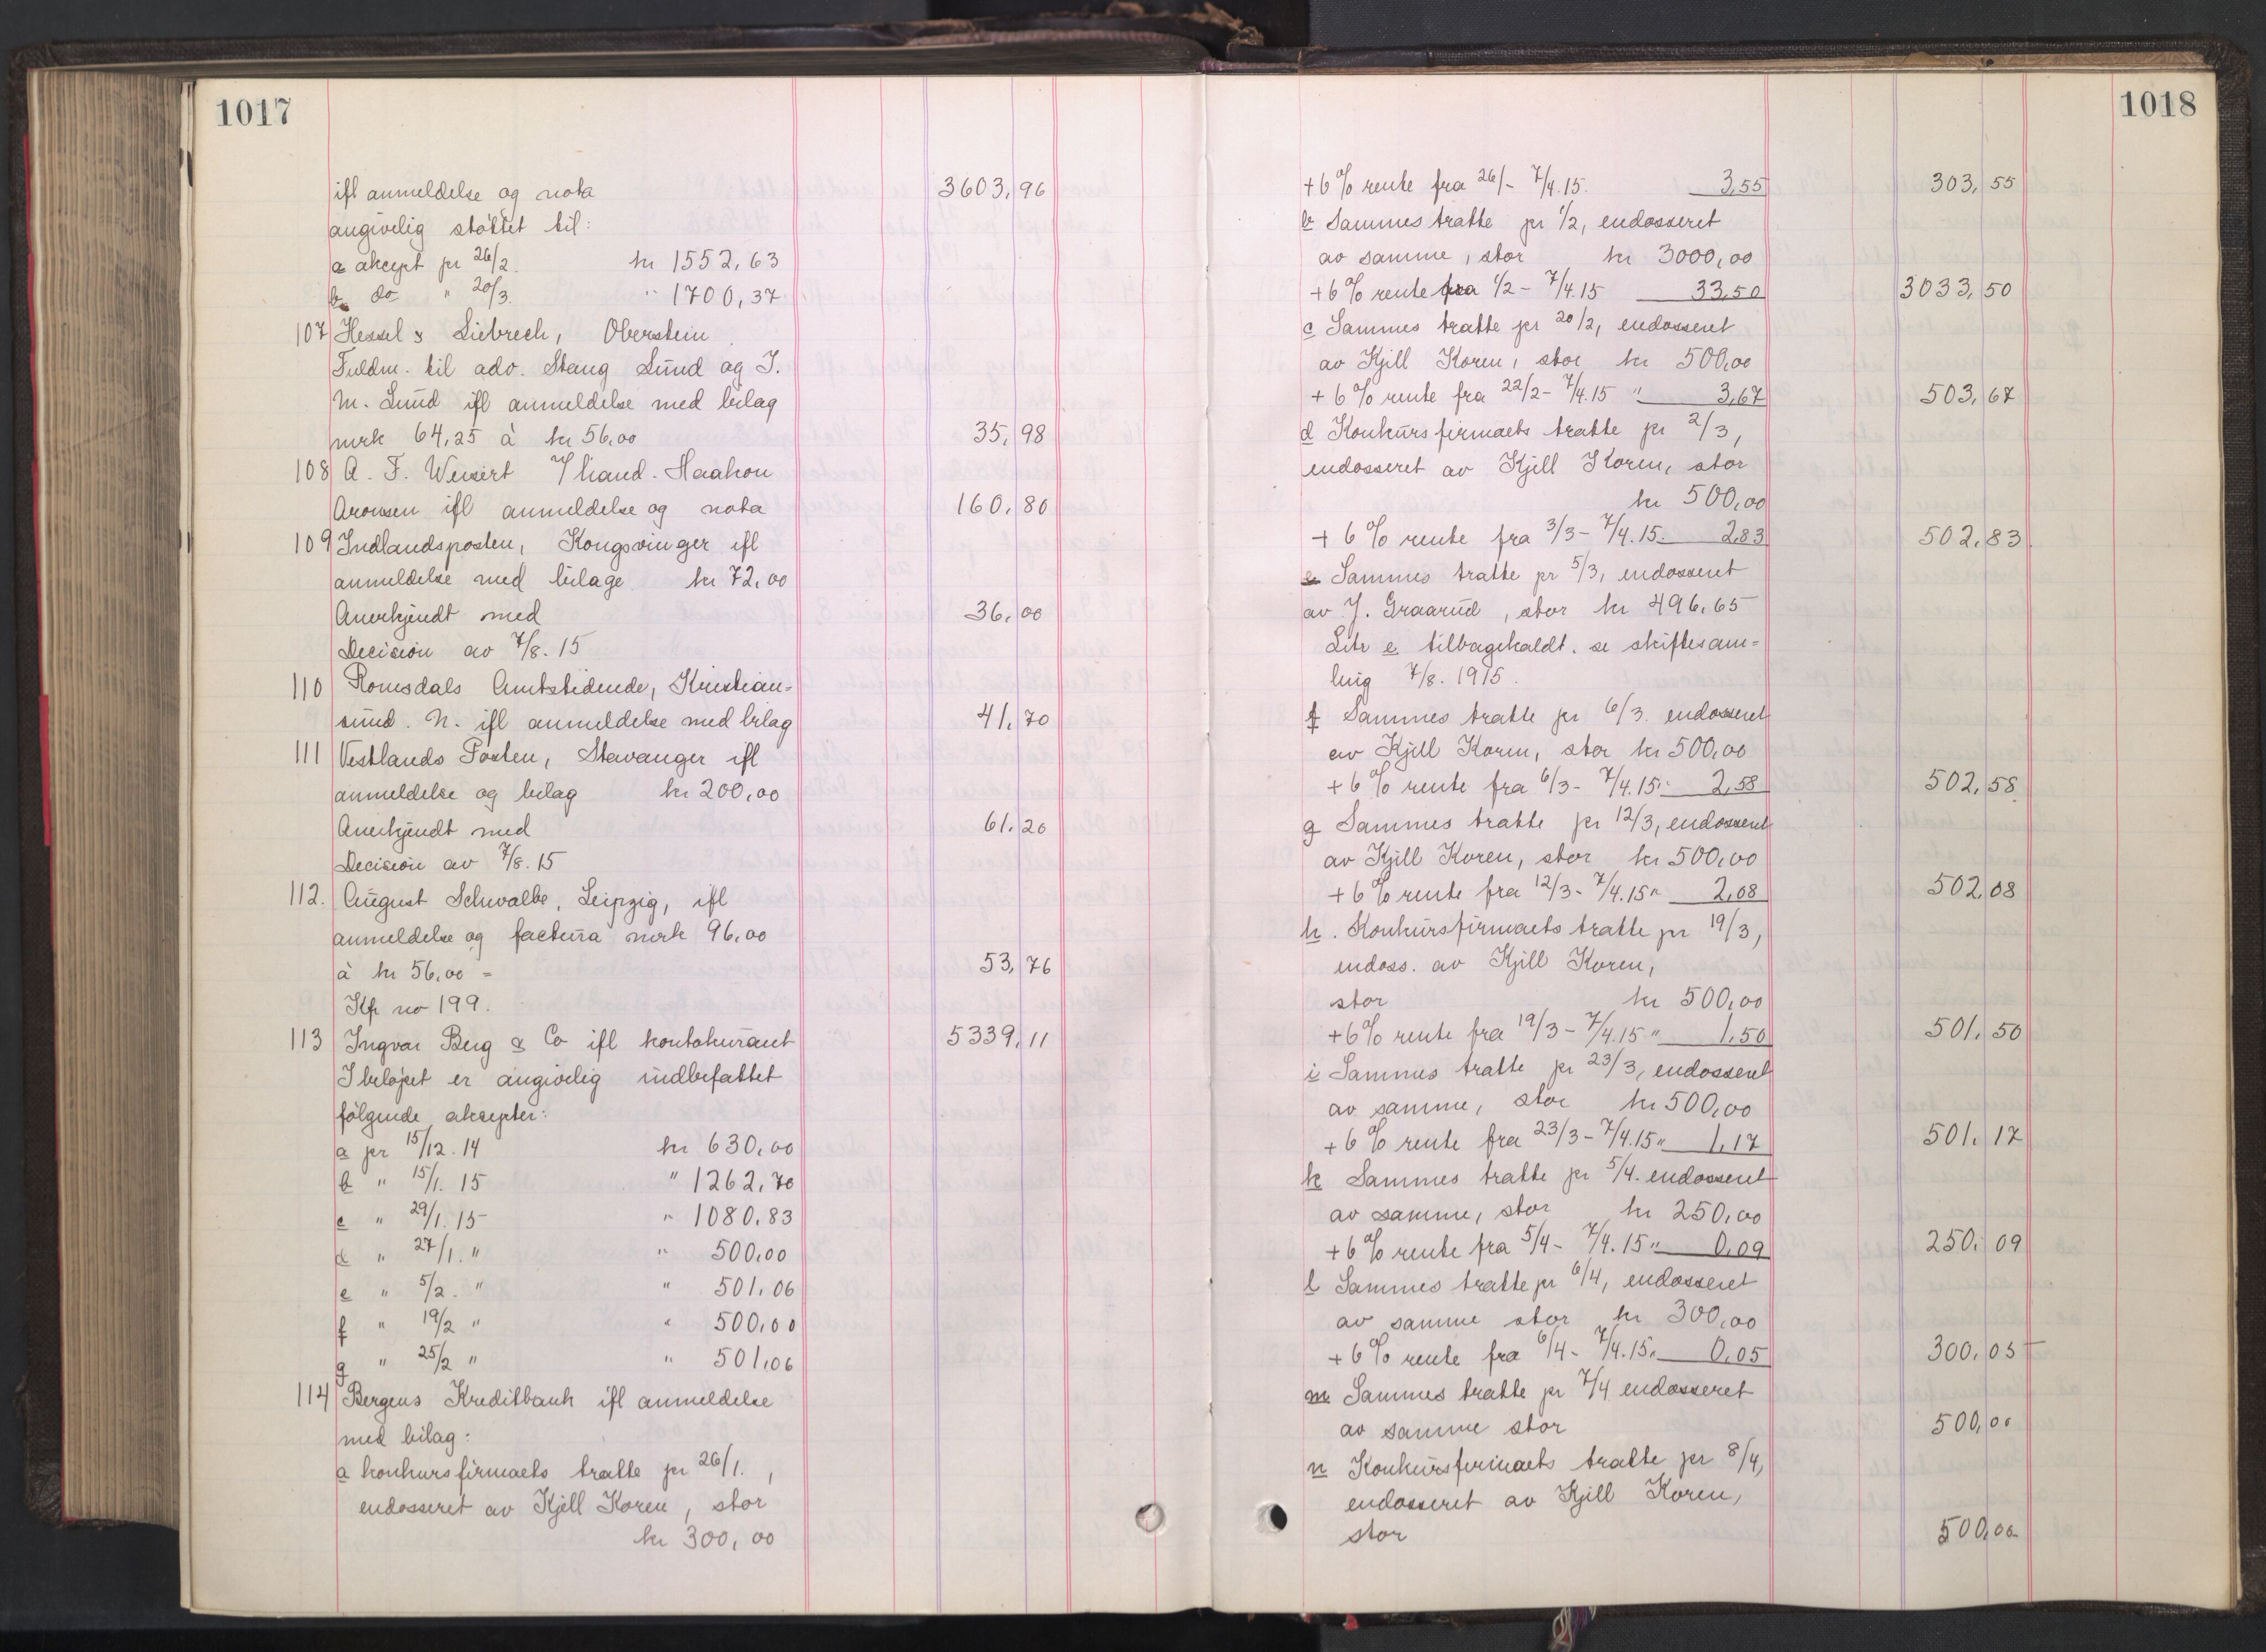 1017
ifl anmeldelse og nota 3603,96
angivelig støttet til:
a akcept pr 26/2. kr 1552,63
b do " 20/3. " 1700,37
107 Hessel & Liebrech, Oberstein
Fuldm. til adv. Stang Lund og J.
M. Lund ifl anmeldelse med bilag
mrk 64,25 à kr 56,00 35,98
108 A. F. Weisert v/ hand. Haakon
Aronsen ifl anmeldelse og nota 160,80
109 Indlandsposten, Kongsvinger ifl
anmeldelse med bilage kr 72,00
Anerkjendt med 36,00
Decision av 7/8. 15
110 Romsdals Amtstidende, Kristian-
sund. N. ifl anmeldelse med bilag 41,70
111 Vestlands Posten, Stavanger ifl
anmeldelse og bilag kr 200,00
Anerkjendt med 61,20
Decision av 7/8. 15
112. August Schwalbe, Leipzig, ifl
anmeldelse og factura mrk 96,00
à kr 56,00 = 53,76
Kfr no 199.
113 Ingvar Berg & Co ifl kontokurant 5339,11
I beløpet er angivelig indbefattet
følgende aksepter:
a pr 15/12. 14 kr 630,00
b " 15/1. 15 " 1262,70
c " 29/1. 15 " 1080,83
d " 27/1. " " 500,00
e " 5/2. " " 501,06
f " 19/2 " " 500,00
g " 25/2 " " 501,06
114 Bergens Kreditbank ifl anmeldelse
med bilag:
a konkursfirmaets tratte pr 26/1. ,
endosseret av Kjell Koren, stor
kr 300,00
1018
+ 6% rente fra 26/- 7/4. 15. 3,55 303,55
b Sammes tratte pr 1/2, endosseret
av samme, stor kr 3000,00
+ 6% rente fra 1/2 - 7/4. 15 33,50 3033,50
c Sammes tratte pr 20/2, endosseret
av Kjell Koren, stor kr 500,00
+ 6% rente fra 22/2 - 7/4. 15 " 3,67 503,67
d Konkursfirmaets tratte pr 2/3,
endosseret av Kjell Koren, stor
kr 500,00
+ 6% rente fra 3/3 - 7/4. 15. 2,83 502,83
e Sammes tratte pr 5/3, endosseret
av J. Graarud, stor kr 496,65
Litr e tilbagekaldt. se skiftesam-
ling 7/8. 1915.
f Sammes tratte pr 6/3. endosseret
av Kjell Koren, stor kr 500,00
+ 6% rente fra 6/3 - 7/4. 15 " 2,58 502,58
g Sammes tratte pr 12/3, endosseret
av Kjell Koren, stor kr 500,00
+ 6% rente fra 12/3 - 7/4. 15 " 2,08 502,08
h. Konkursfirmaets tratte pr 19/3,
endoss. av Kjell Koren,
stor kr 500,00
+ 6% rente fra 19/3 - 7/4. 15 " 1,50 501,50
i Sammes tratte pr 23/3, endosseret
av samme, stor kr 500,00
+ 6% rente fra 23/3 - 7/4. 15 " 1,17 501,17
k Sammes tratte pr 5/4. endosseret
av samme, stor kr 250,00
+ 6% rente fra 5/4 - 7/4. 15 " 0,09 250,09
l Sammes tratte pr 6/4, endosseret
av samme stor kr 300,00
+ 6% rente fra 6/4 - 7/4. 15 " 0,05 300,05
m Sammes tratte pr 7/4 endosseret
av samme stor 500,00
n Konkursfirmaets tratte pr 8/4,
endosseret av Kjell Koren,
stor 500,00